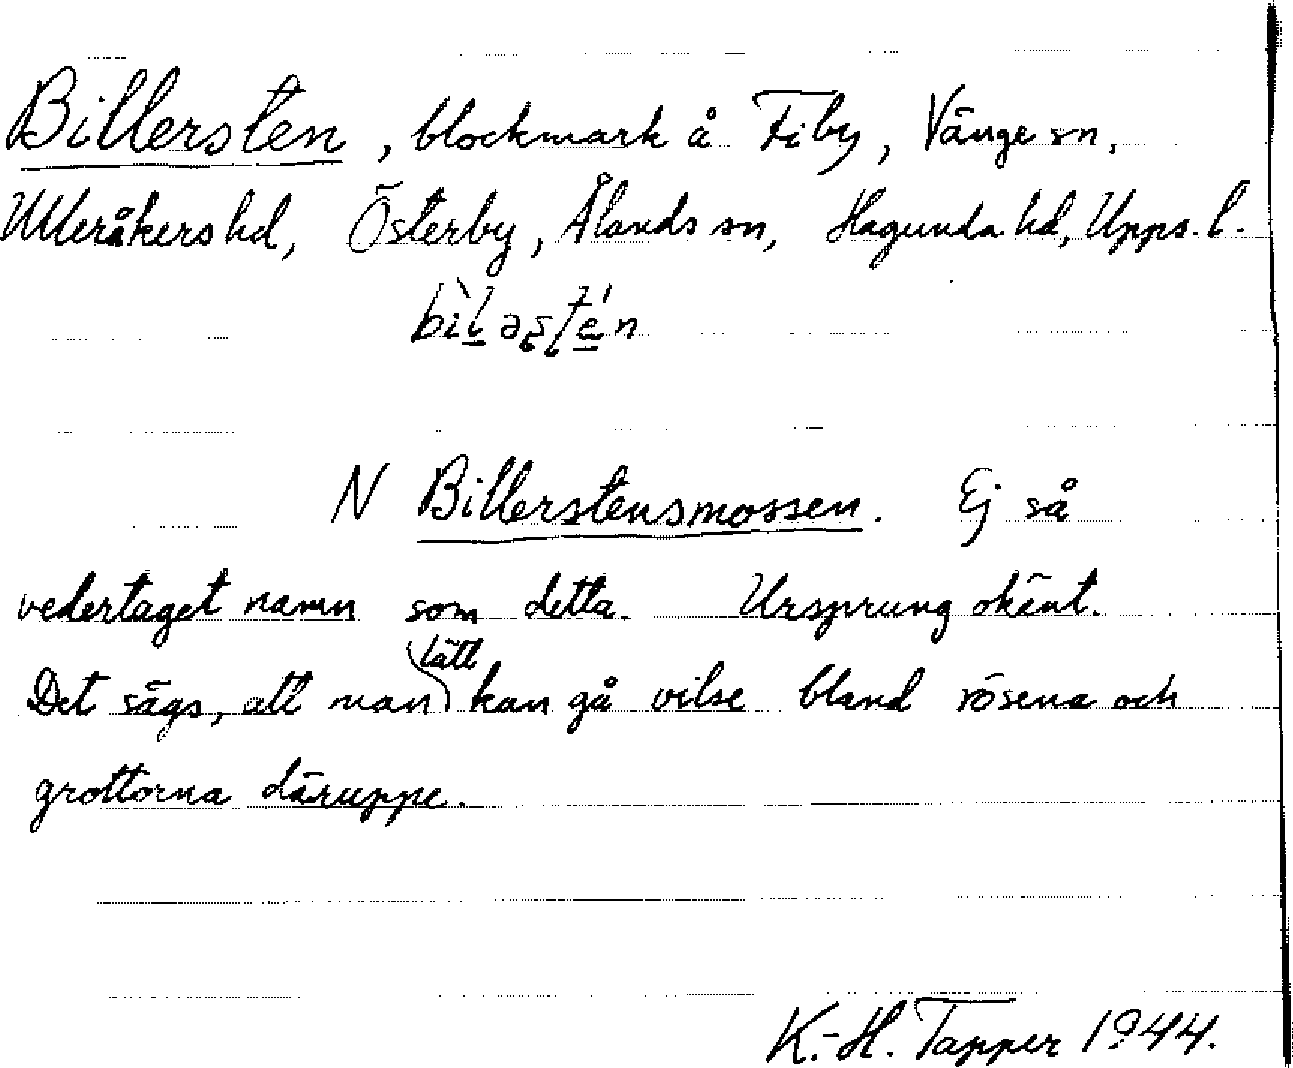 Billersten, blockmark å Fiby, Vänge sn,
Ulleråkers hd, Österby, Ålands sn, Hagunda hd, Upps. l.
N Billerstensmossen. Ej så
vedertaget namn som detta. Ursprung okänt.
Det sägs, att man lätt kan gå vilse bland rösena och
grottorna däruppe.
K.-H. Tapper 1944.